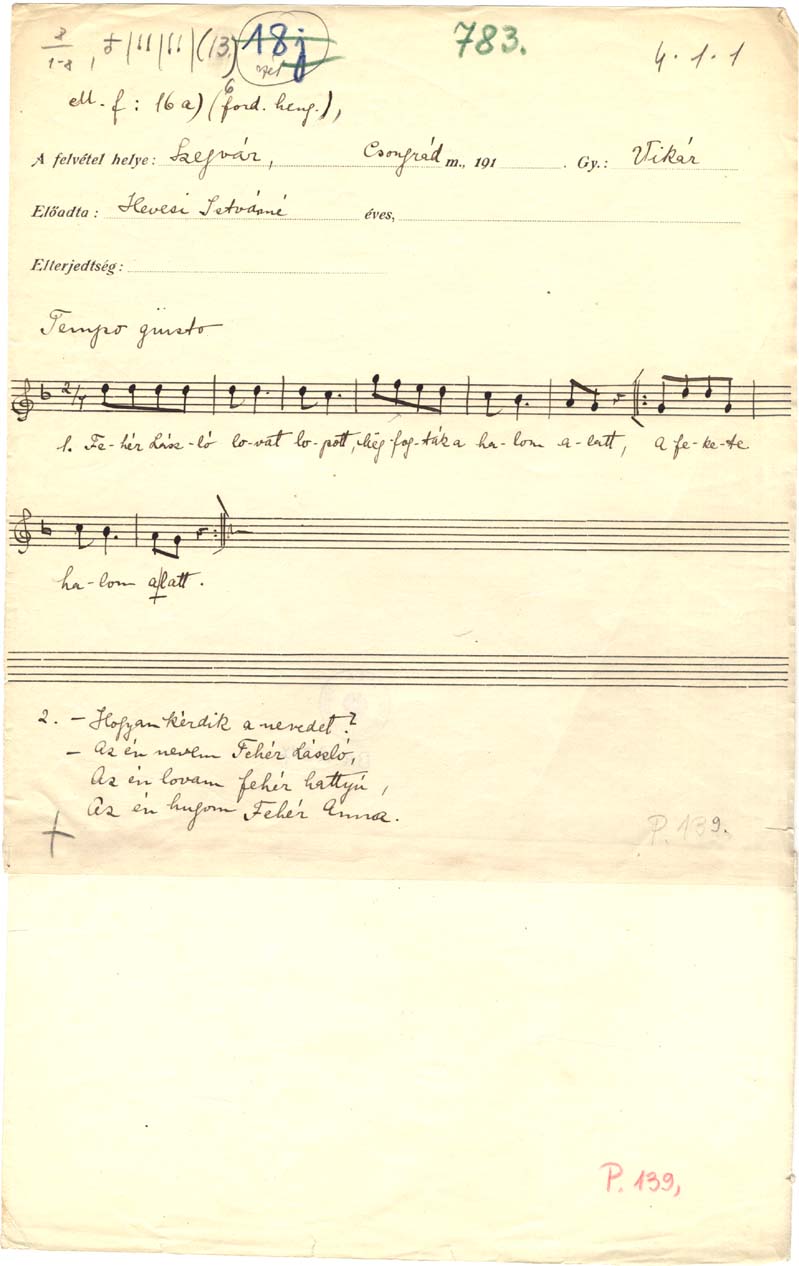 8/1-8, 5 | 11 | 11 | (13) 18j 783. 4.1.1
M. f: 16a) (ford. heng.),
A felvétel helye: Szegvár, Csongrád m., 191 . Gy.: Vikár
Előadta: Hevesi Istvánné éves,
Elterjedtség:
Tempo giusto
2/4
1. Fe-hér Lász-ló lo-vat lo-pott, Meg-fog-ták a ha-lom a-latt, a fe-ke-te
ha-lom alatt.
2. - Hogyan kérdik a nevedet?
- Az én nevem Fehér László,
Az én lovam fehér hattyú,
Az én hugom Fehér Anna.
P. 139.
P. 139,